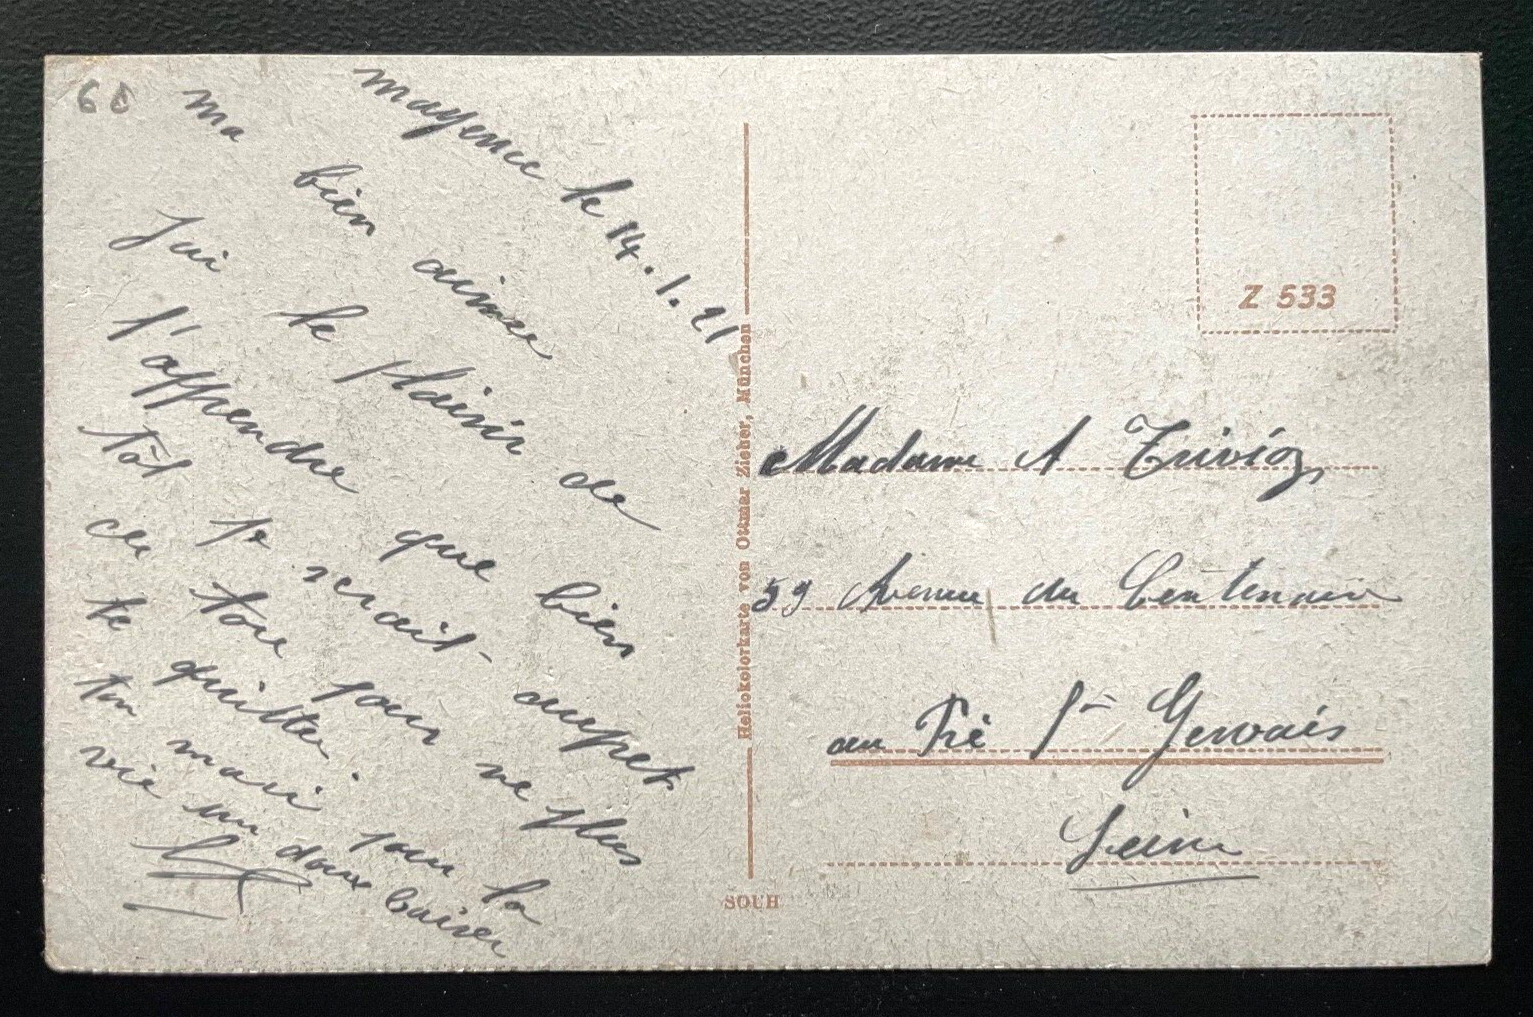 60
Mayence le 14.1.21
ma bien aimee
J'ai le plaisir de
t'apprendre que bien
tôt je serait aupret
de toie pour ne plus
te quitter.
ton mari pour la
vie un doux baiser
Heliokolorkarte von Ottmar Zieher, München
SOUH
Z 533
Madame A
59 Avenue du Centenaire
au Pré St Gervais
Seine